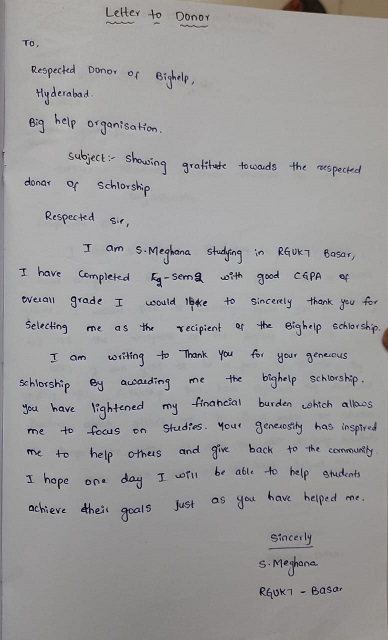 Letter to Donor
To,
Respected Donor of Bighelp,
Hyderabad.
Big help organisation.
Subject:- Showing gratitute towards the respected
donar of schlorship
Respected Sir,
I am S.Meghana studying in RGUKT Basar,
I have completed with good CGPA of
overall grade I would like to sincerely thank you for
selecting me as the recipient of the Bighelp schlorship.
I am writing to Thank you for your generous
schlorship By awarding me the bighelp schlorship.
you have lightened my financial burden which allows
me to focus on studies. Your generosity has inspired
me to help others and give back to the community.
I hope one day I will be able to help students
achieve their goals Just as you have helped me.
Sincerly
S.Meghana
RGUKT - Basar